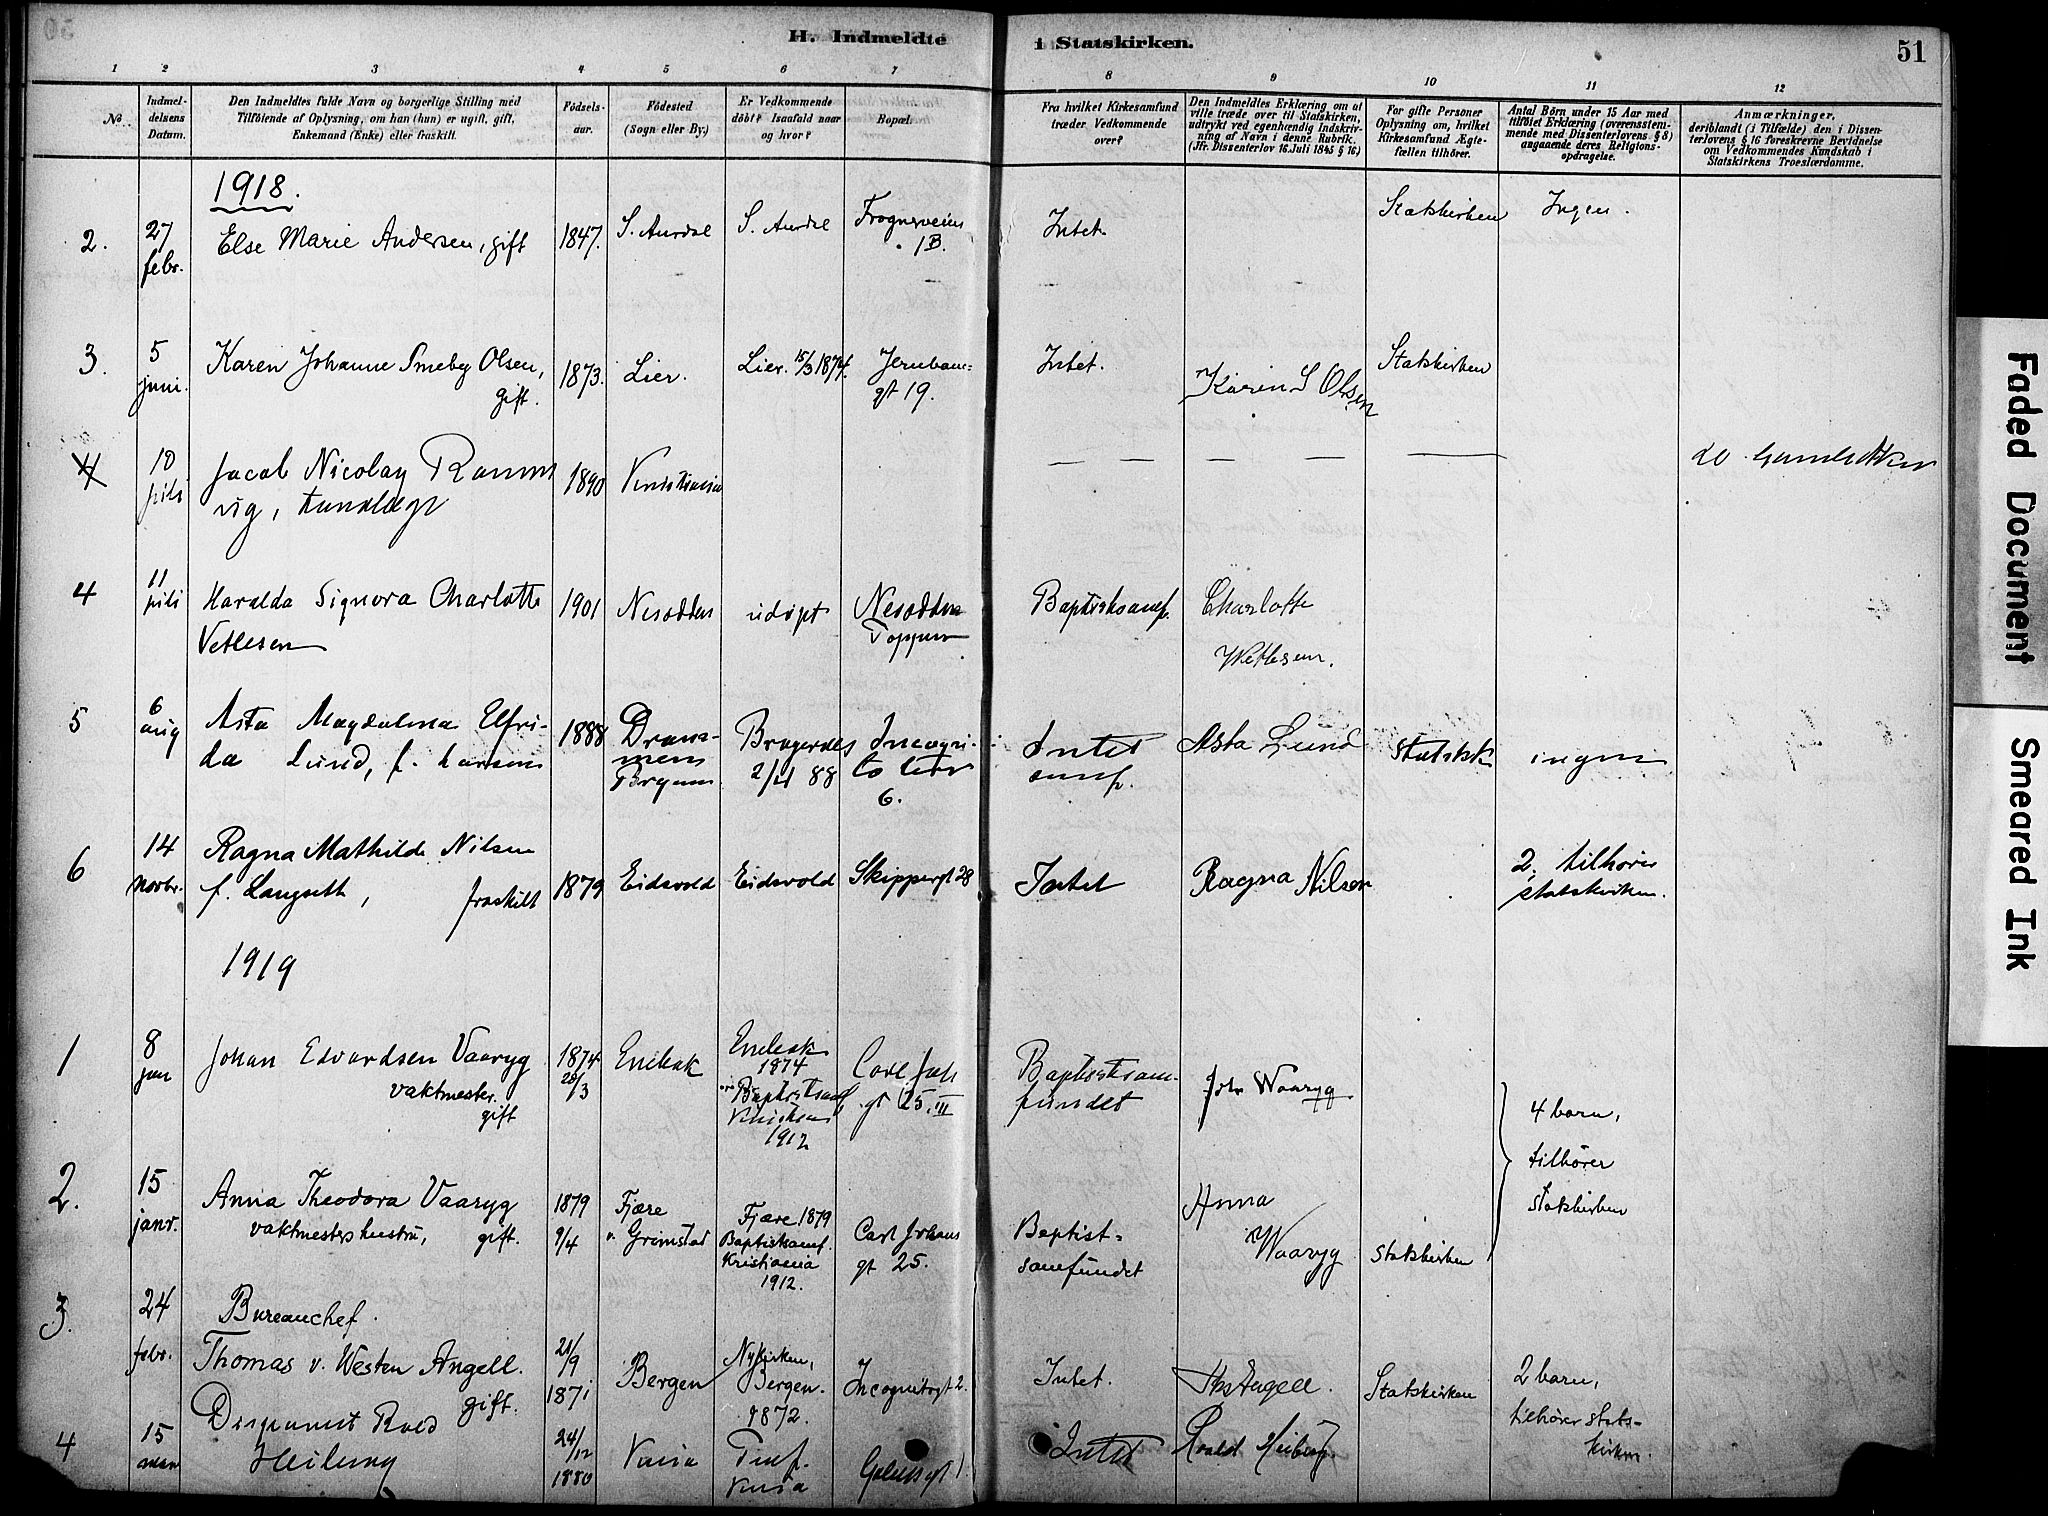 H. Indmeldte i Statskirken.
51
1 2 3 4 5 6 7 8 9 10 11 12
No
Indmel-
delsens
Datum.
Den Indmeldtes fulde Navn og borgerlige Stilling med
Tilföiende af Oplysning, om han (hun) er ugift, gift,
Enkemand (Enke) eller fraskilt.
Födsels-
aar.
Födested
(Sogn eller By.)
Er Vedkommende
döbt? Isaafald naar
og hvor?
Bopæl.
Fra hvilket Kirkesamfund
træder Vedkommende
over?
Den Indmeldtes Erklæring om at
ville træde over til Statskirken,
udtrykt ved egenhændig Indskriv-
ning af Navn i denne Rubrik.
(Jfr. Dissenterlov 16. Juli 1845 § 16)
For gifte Personer
Oplysning om, hvilket
Kirkesamfund Ægte-
fællen tilhörer.
Antal Börn under 15 Aar med
tilföiet Erklæring (overensstem-
mende med Dissenterlovens § 8)
angaaende deres Religions-
opdragelse.
Anmærkninger,
deriblandt (i Tilfælde) den i Dissen-
terlovens § 16 foreskrevne Bevidnelse
om Vedkommendes Kundskab i
Statskirkens Troeslærdomme.
1918.
2.
27
febr.
Else Marie Andersen, gift
1847.
S. Aurdal
S. Aurdal
Frognerveien
1B.
Intet.
Statskirken
Ingen.
3.
5
juni.
Karen Johanne Smeby Olsen,
gift.
1873.
Lier.
Lier. 15/3 1874.
Jernbane-
gt 19.
Intet.
Karin S Olsen
Statskirken
4
10
juli
Jacob Nicolay Ramm
vig, tandlæge
1890
Kristiania
4
11
juli
Haralda Signora Charlotte
Vetlesen
1901
Nesodden
udøpt
Nesodden
Toppen
Baptistsamf.
Charlotte
Wetlesen.
5
6
aug
Asta Magdalena Elfri-
da Lund, f. Larsen
1888
Dram-
mens
Bragernes
2/4 88
Incogni-
to terr
6.
Intet
samf.
Asta Lund
Statsk
ingen
6
14
novbr.
Ragna Mathilde Nilsen
f. Langseth, fraskilt
1879
Eidsvold
Eidsvold
Skippergt 28
Intet
Ragna Nilsen
2, tilhører
statskirken.
1919
1
8
jan
Johan Edvardsen Vaaryg
vaktmester.
gift
1874
28/3
Enebak
Enebak
1874
Baptistsamf
1912
Carl Joh
gt 25. III
Baptistsam-
fundet
Joh Waaryg
4 barn,
tilhører
statskirken
2.
15
janr.
Anna Theodora Vaaryg
vaktmesters hustru, gift.
1879
9/4
Fjære
v. Grimstad
Fjære 1879
Baptistsamf.
Kristiania
1912.
Carl Johans
gt 25.
Baptist-
samfundet
Anna
Waaryg
Statskirken
3.
24
febr.
Bureauchef.
Thomas v. Westen Angell.
gift.
21/9
1871
Bergen
Nykirken,
Bergen.
1872.
Incognitogt 2.
Intet.
Statskirken
2 barn,
tilhører stats-
kirken.
4
15
mars
Roald
Heiberg
24/12
1880
Intet
Roald Heiberg.
Faded Document
Smeared Ink